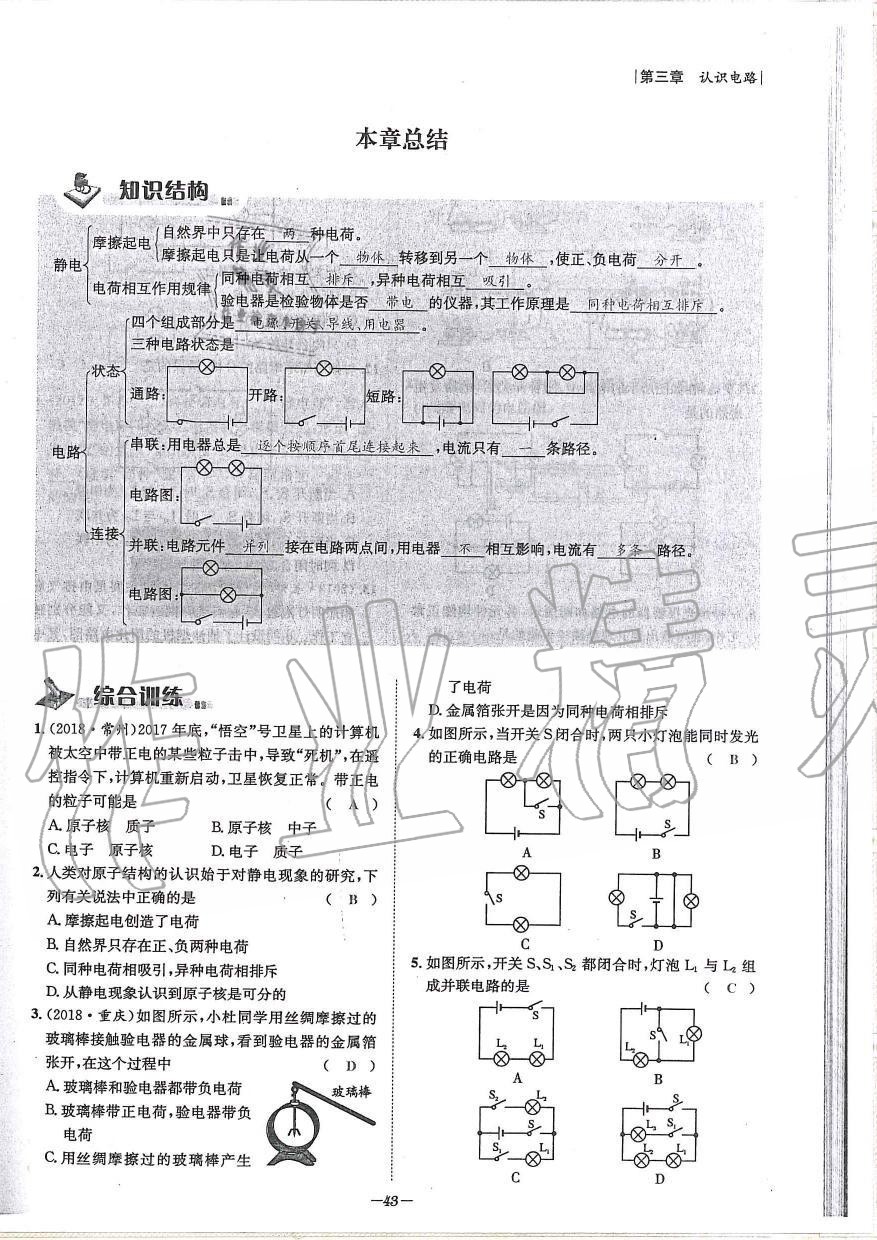 第三章 认识电路
本章总结
知识结构
静电
摩擦起电
自然界中只存在 两 种电荷。
摩擦起电只是让电荷从一个 物体 转移到另一个 物体 ,使正、负电荷 分开 。
电荷相互作用规律
同种电荷相互 排斥 ,异种电荷相互 吸引 。
验电器是检验物体是否 带电 的仪器,其工作原理是 同种电荷相互排斥 。
电路
状态
四个组成部分是 电源、开关、导线、用电器 。
三种电路状态是
通路:
开路:
短路:
连接
串联:用电器总是 逐个按顺序首尾连接起来 ,电流只有 一 条路径。
电路图:
并联:电路元件 并列 接在电路两点间,用电器 不 相互影响,电流有 多条 路径。
电路图:
综合训练
1. (2018·常州)2017年底,“悟空”号卫星上的计算机
被太空中带正电的某些粒子击中,导致“死机”,在遥
控指令下,计算机重新启动,卫星恢复正常。带正电
的粒子可能是 ( A )
A. 原子核 质子 B. 原子核 中子
C. 电子 原子核 D. 电子 质子
2. 人类对原子结构的认识始于对静电现象的研究,下
列有关说法中正确的是 ( B )
A. 摩擦起电创造了电荷
B. 自然界只存在正、负两种电荷
C. 同种电荷相吸引,异种电荷相排斥
D. 从静电现象认识到原子核是可分的
3. (2018·重庆)如图所示,小杜同学用丝绸摩擦过的
玻璃棒接触验电器的金属球,看到验电器的金属箔
张开,在这个过程中 ( D )
A. 玻璃棒和验电器都带负电荷
B. 玻璃棒带正电荷,验电器带负
电荷
C. 用丝绸摩擦过的玻璃棒产生
玻璃棒
了电荷
D. 金属箔张开是因为同种电荷相排斥
4. 如图所示,当开关S闭合时,两只小灯泡能同时发光
的正确电路是 ( B )
S
S
A B
S
S
C D
5. 如图所示,开关S、S₁、S₂都闭合时,灯泡L₁与L₂组
成并联电路的是 ( C )
S
L₂ L₁
S
L₁
L₂
A B
S₂ L₂
S
S₁ L₁
S
L₃ S₁
L₂ L₁
C D
—43—
作业精灵